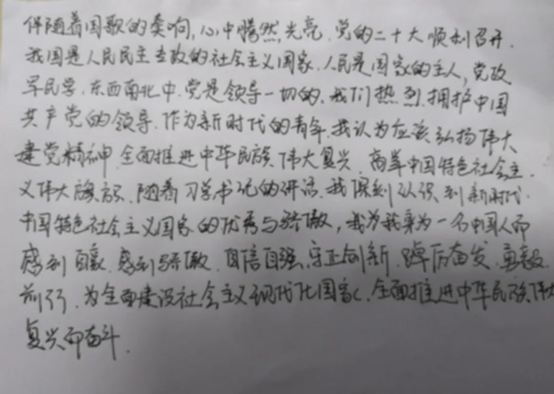 伴随着国歌的奏响,心中腾然光亮,党的二十大顺利召开.
我国是人民民主专政的社会主义国家.人民是国家的主人,党政
军民学.东西南北中.党是领导一切的.我们热烈拥护中国
共产党的领导.作为新时代的青年.我认为应该弘扬伟大
建党精神.全面推进中华民族伟大复兴.高举中国特色社会主
义伟大旗帜.随着习学书记的讲话.我深刻认识到新时代
中国特色社会主义国家的优秀与骄傲,我为我身为一名中国人而
感到自豪.感到骄傲.自信自强.守正创新.踔厉奋发.勇毅
前行.为全面建设社会主义现代化国家.全面推进中华民族伟大
复兴而奋斗.